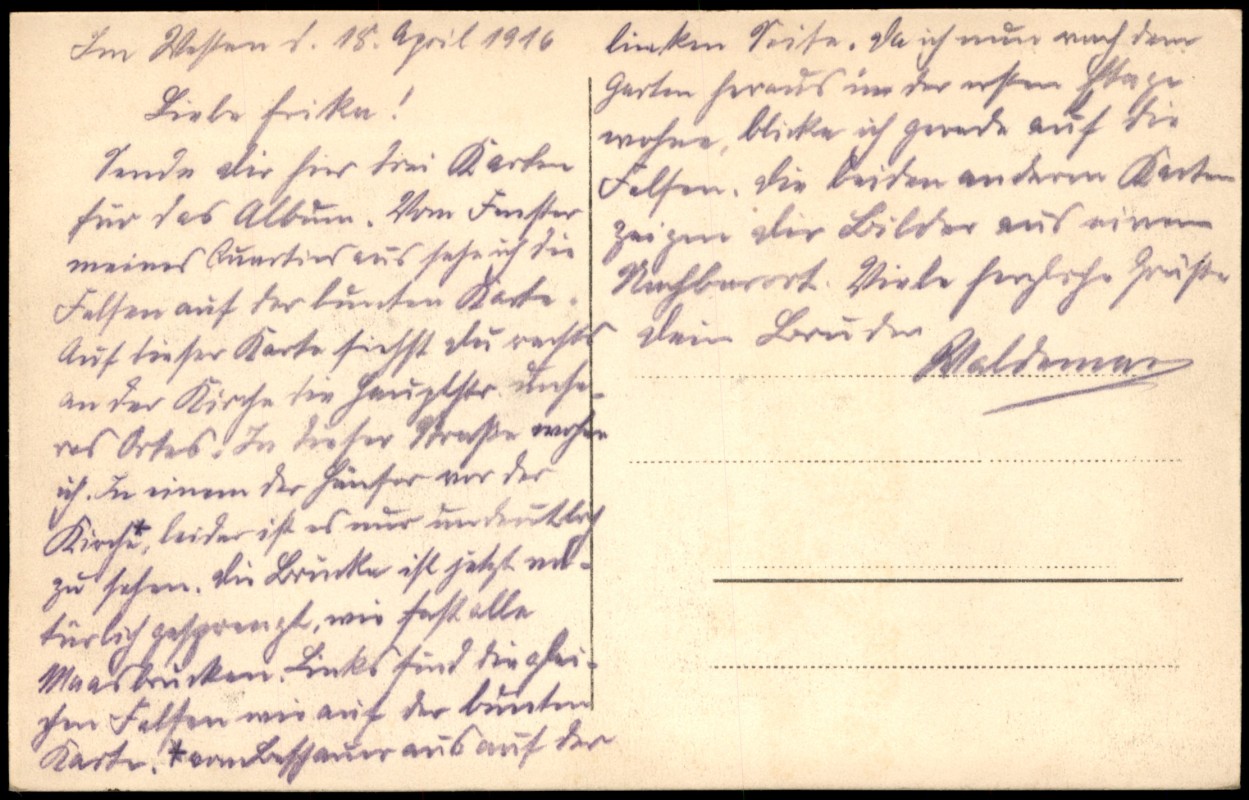 Im Westen d. 18. April 1916
Liebe Erika!
Sende dir hier drei Karten
für das Album. Vom Fenster
meines Quartiers aus sehe ich die
Felsen auf der bunten Karte.
Auf dieser Karte siehst du rechts
an der Kirche die Hauptstr. unse-
res Ortes. In dieser Straße wohne
ich. In einem der Häuser vor der
Kirche*, leider ist es nur undeutlich
zu sehen. Die Brücke ist jetzt na-
türlich gesprengt, wie fast alle
Maasbrücken. Links sind die glei-
chen Felsen wie auf der bunten
Karte. *vom Beschauer aus auf der
linken Seite. Da ich nun nach dem
Garten heraus in der ersten Etage
wohne, blicke ich gerade auf die
Felsen. Die beiden anderen Karten
zeigen dir Bilder aus einem
Nachbarort. Viele herzliche Grüße
dein Bruder
Waldemar